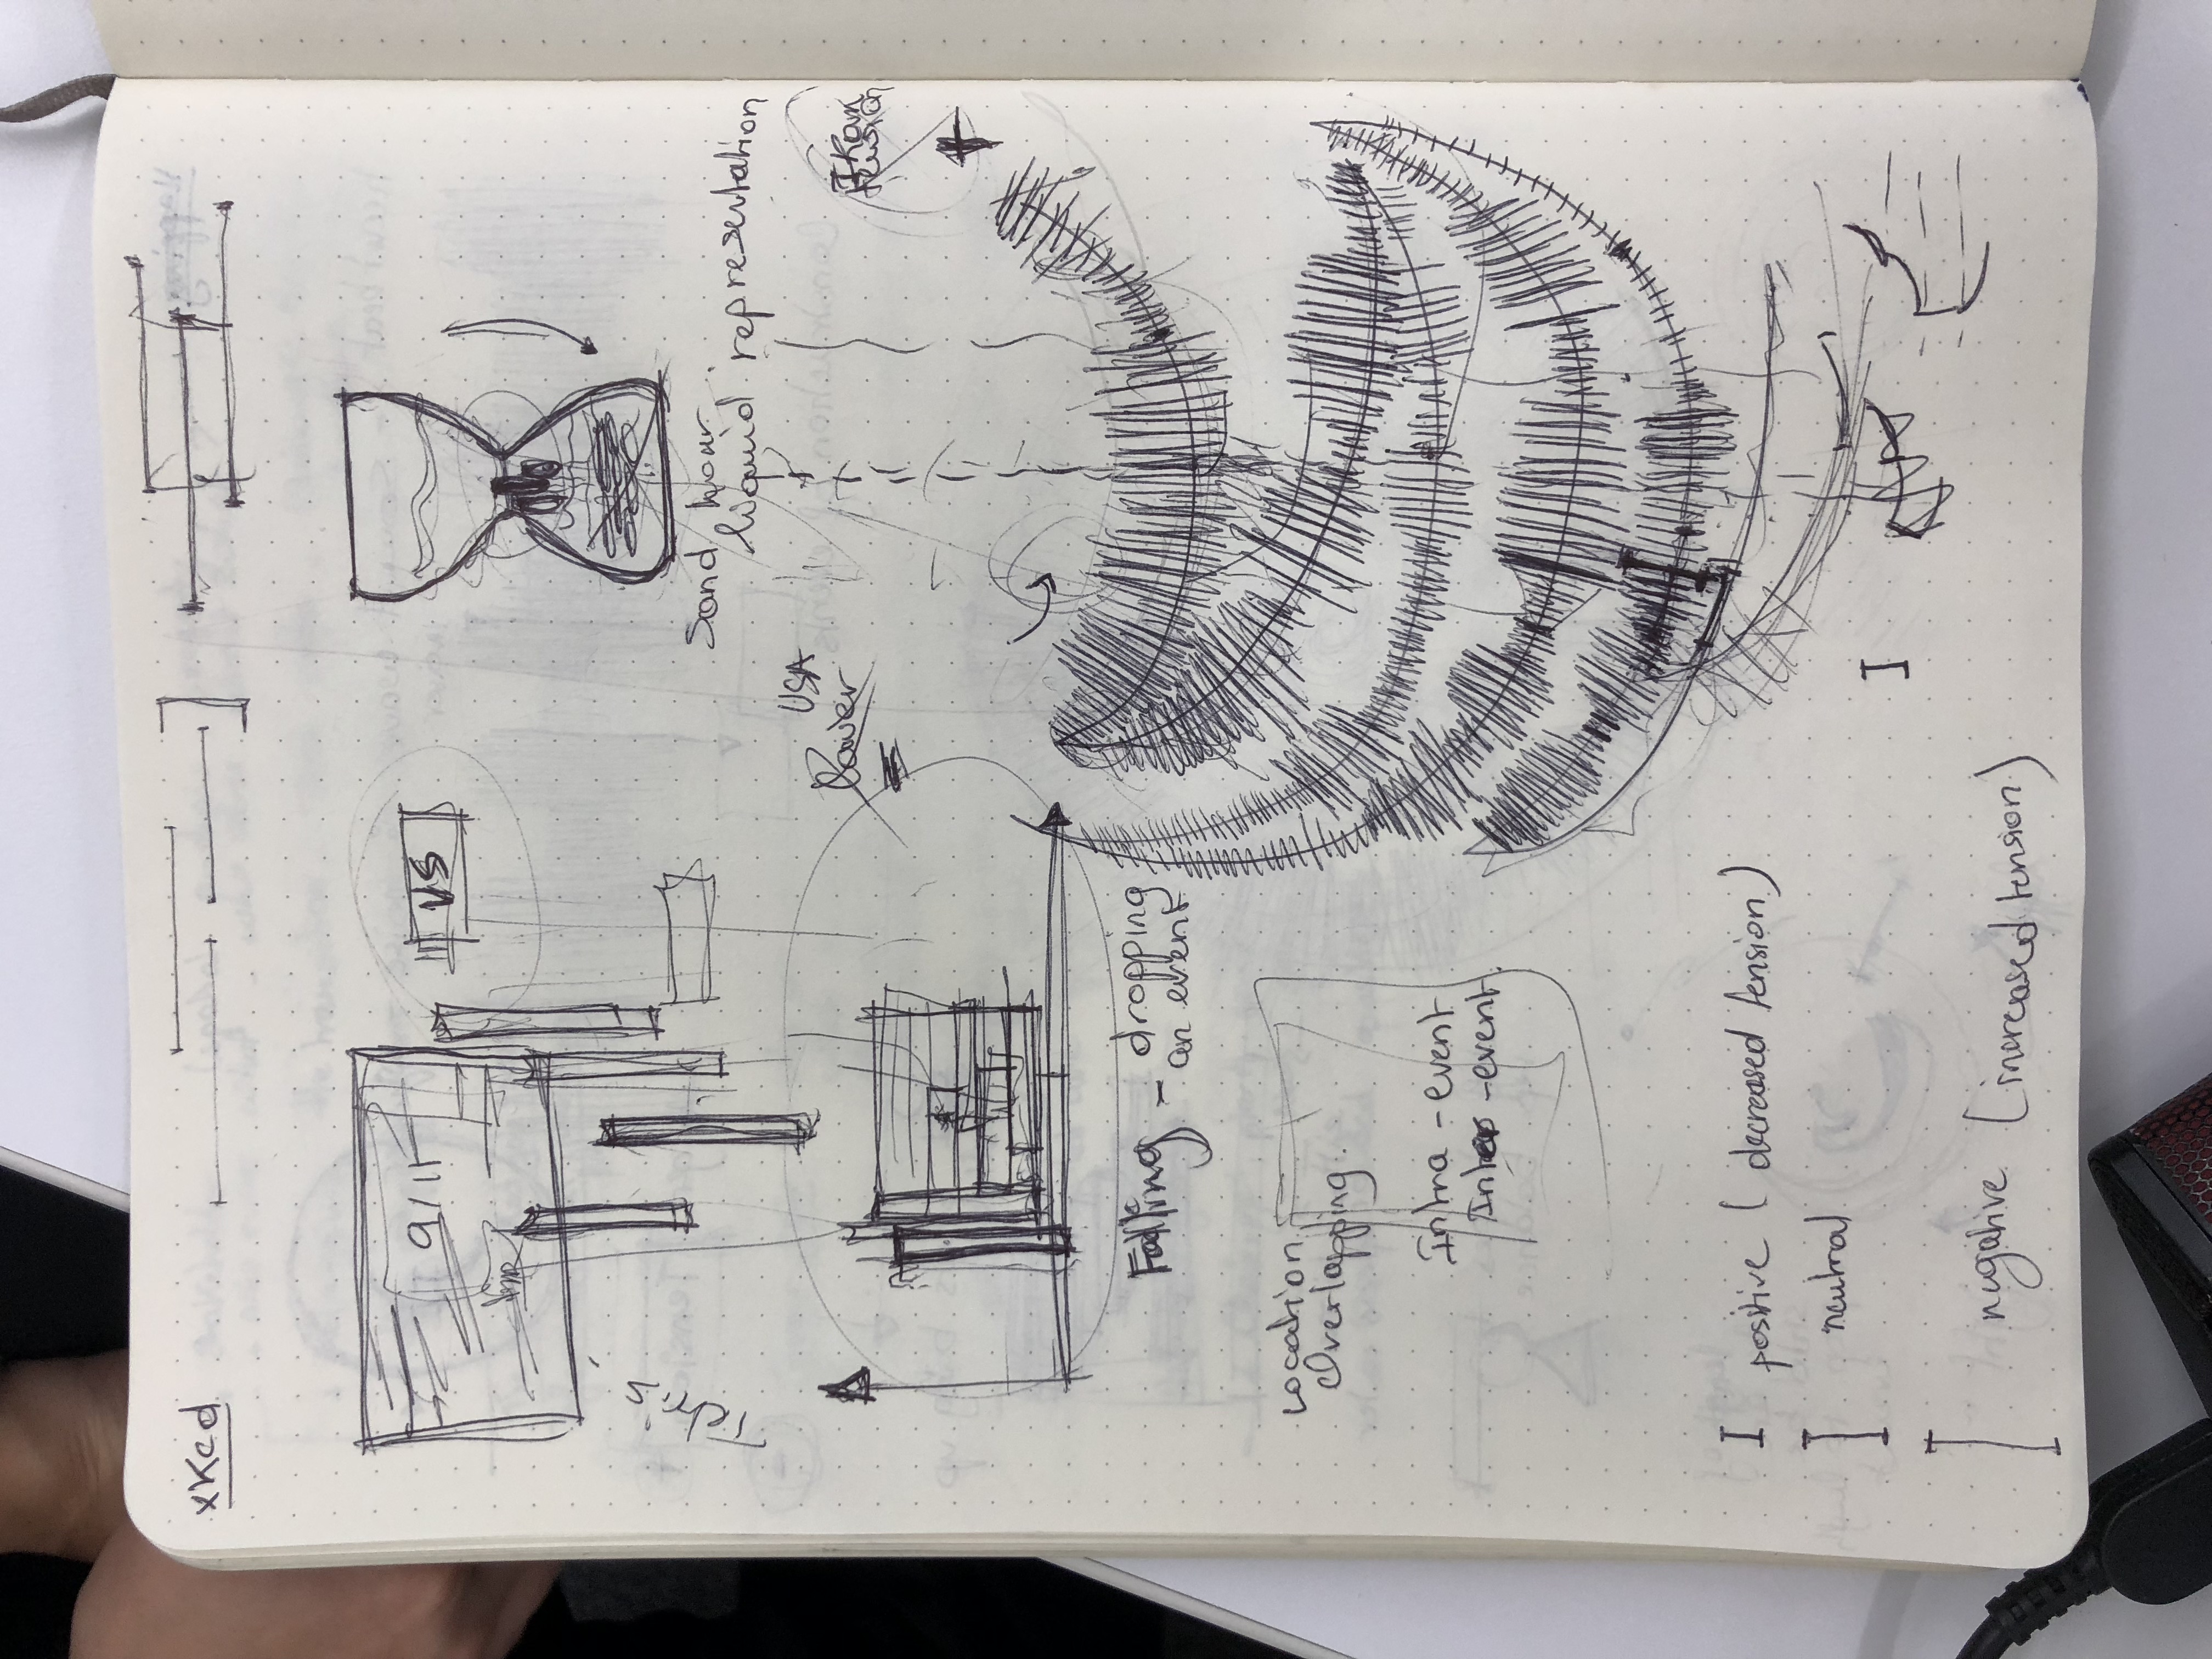 xKcd
9/11
VS
Tetris
Sand hour
liquid representation
USA
Falling - dropping
an event
Location
Overlapping.
Intra - event
Inter - event.
I positive ( decreased tension )
I neutral
I nugative ( increased tension )